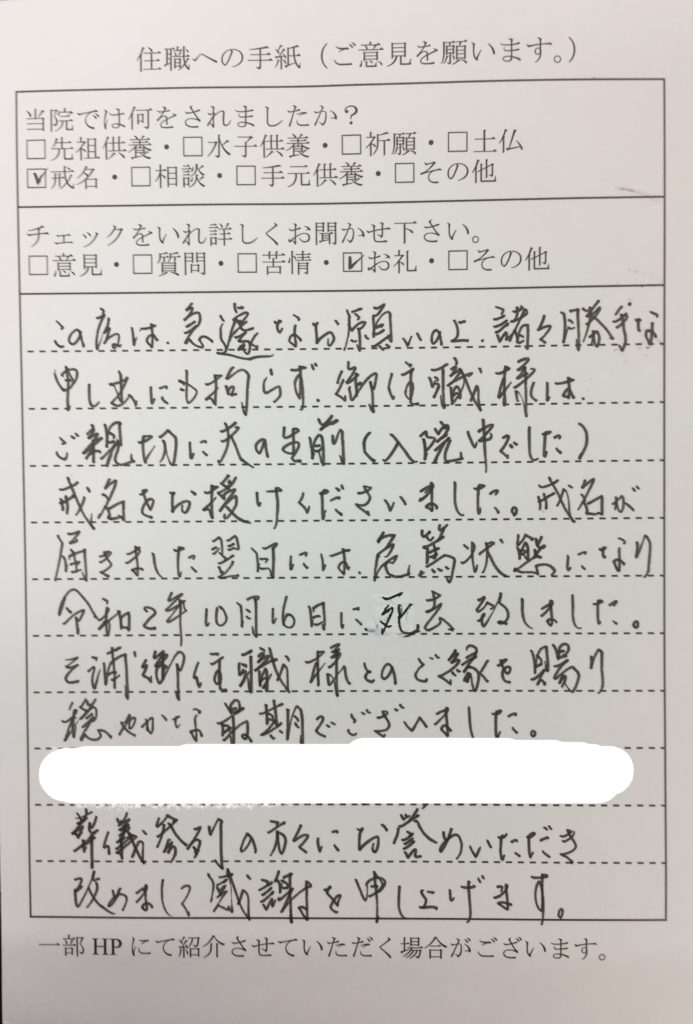 住職への手紙（ご意見を願います。）
当院では何をされましたか？
□先祖供養・□水子供養・□祈願・□土仏
☑戒名・□相談・□手元供養・□その他
チェックをいれ詳しくお聞かせ下さい。
□意見・□質問・□苦情・☑お礼・□その他
この度は、急遽なお願いの上、諸々勝手な
申し出にも拘らず、御住職様は
ご親切に夫の生前（入院中でした）
戒名をお授けくださいました。戒名が
届きました翌日には、危篤状態になり
令和2年10月16日に、死去致しました。
三浦御住職様とのご縁を賜り
穏やかな最期でございました。
葬儀参列の方々にお誉めいただき
改めまして感謝を申し上げます。
一部HPにて紹介させていただく場合がございます。